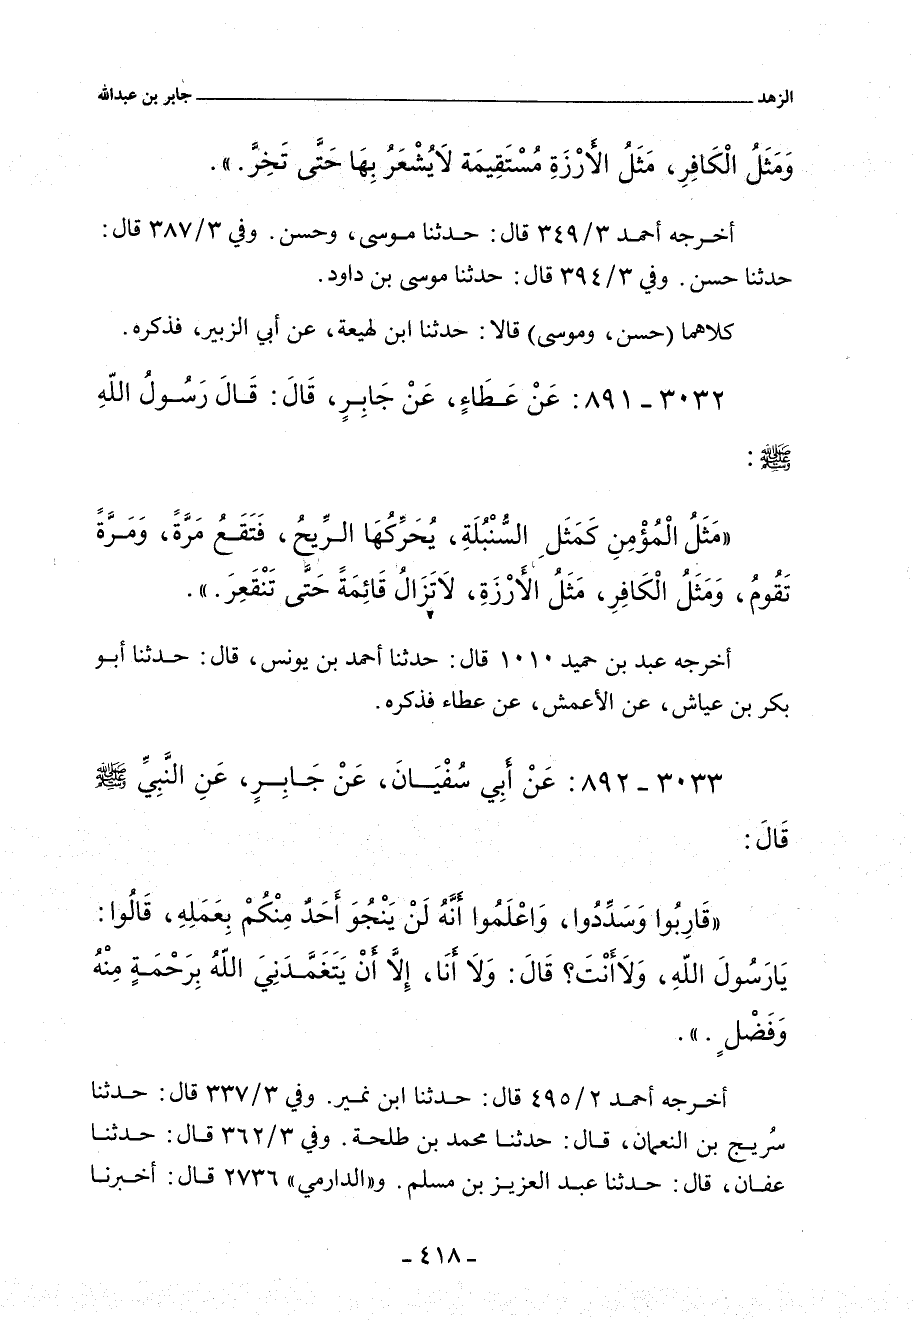 الزهد ــــــــــــــــــــــــــــــــــــــــ جابر بن عبدالله
وَمَثَلُ الْكَافِرِ، مَثَلُ الأَرْزَةِ مُسْتَقِيمَة لَايُشْعَرُ بِهَا حَتَّى تَخِرَّ.».
أخرجه أحمد ٣٤٩/٣ قال: حدثنا موسى، وحسن. وفي ٣٨٧/٣ قال:
حدثنا حسن. وفي ٣٩٤/٣ قال: حدثنا موسى بن داود.
كلاهما (حسن، وموسى) قالا: حدثنا ابن لهيعة، عن أبي الزبير، فذكره.
٣٠٣٢ - ٨٩١: عَنْ عَطَاءٍ، عَنْ جَابِرٍ، قَالَ: قَالَ رَسُولُ اللّهِ
ﷺ:
«مَثَلُ الْمُؤْمِنِ كَمَثَلِ السُّنْبُلَةِ، يُحَرِّكُهَا الرِّيحُ، فَتَقَعُ مَرَّةً، وَمَرَّةً
تَقُومُ، وَمَثَلُ الْكَافِرِ، مَثَلُ الأَرْزَةِ، لَاتَزَالُ قَائِمَةً حَتَّى تَنْقَعِرَ.».
أخرجه عبد بن حميد ١٠١٠ قال: حدثنا أحمد بن يونس، قال: حدثنا أبو
بكر بن عياش، عن الأعمش، عن عطاء فذكره.
٣٠٣٣ - ٨٩٢: عَنْ أَبِي سُفْيَانَ، عَنْ جَابِرٍ، عَنِ النَّبِيِّ ﷺ
قَالَ:
«قَارِبُوا وَسَدِّدُوا، وَاعْلَمُوا أَنَّهُ لَنْ يَنْجُوَ أَحَدٌ مِنْكُمْ بِعَمَلِهِ، قَالُوا:
يَارَسُولَ اللّهِ، وَلَاأَنْتَ؟ قَالَ: وَلَا أَنَا، إِلَّا أَنْ يَتَغَمَّدَنِيَ اللّهُ بِرَحْمَةٍ مِنْهُ
وَفَضْلٍ.».
أخرجه أحمد ٤٩٥/٢ قال: حدثنا ابن نمير. وفي ٣٣٧/٣ قال: حدثنا
سُريج بن النعمان، قال: حدثنا محمد بن طلحة. وفي ٣٦٢/٣ قال: حدثنا
عفان، قال: حدثنا عبد العزيز بن مسلم. و«الدارمي» ٢٧٣٦ قال: أخبرنا
- ٤١٨ -